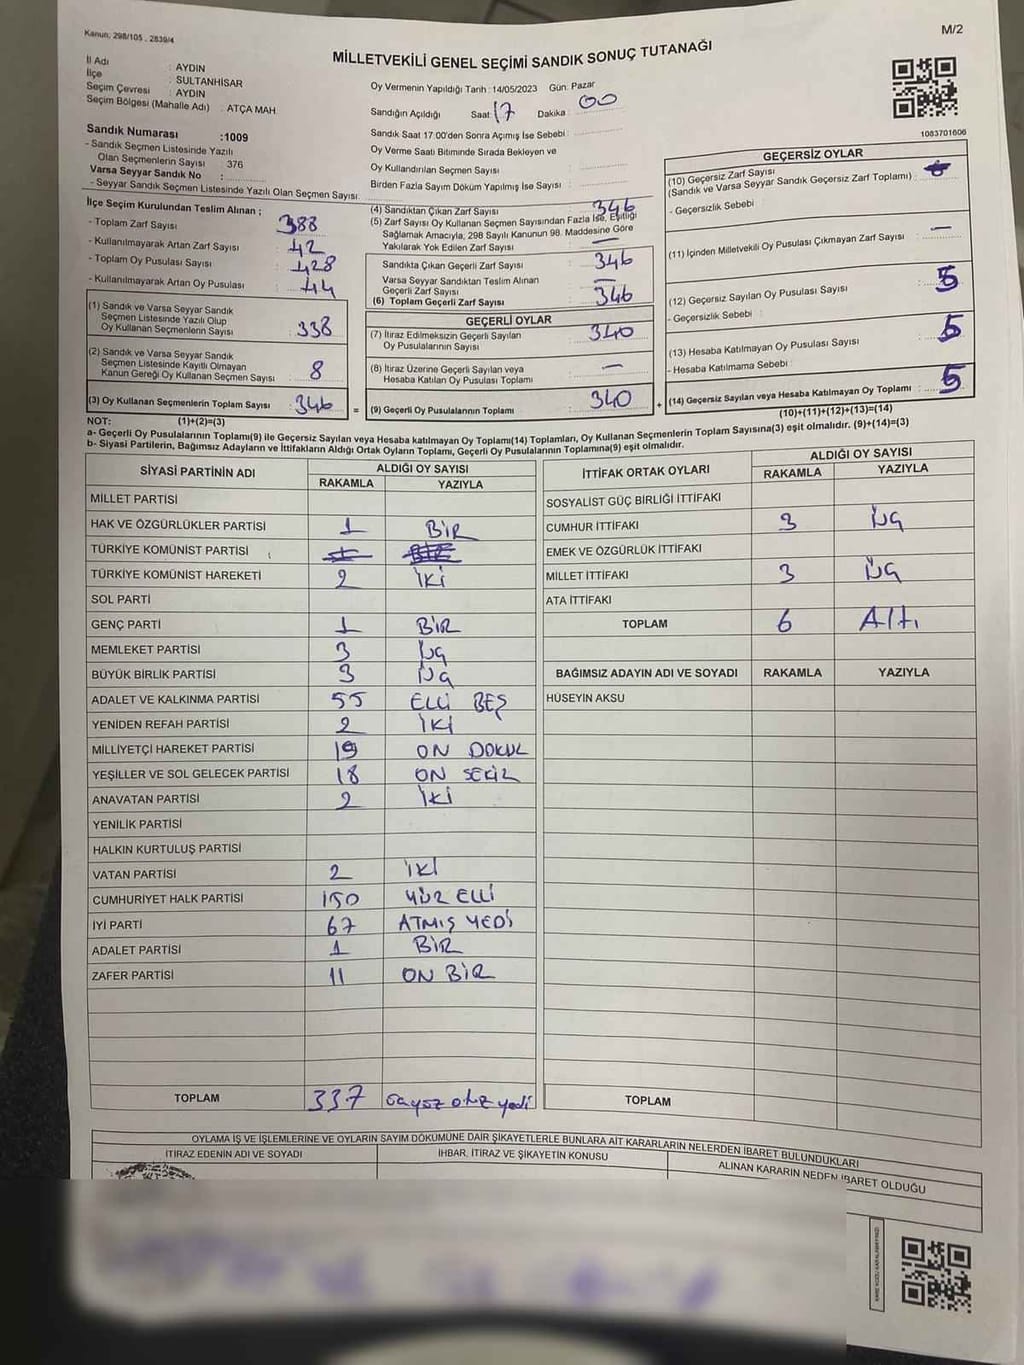 Kanun, 298/105 . 2839/4
M/2
MİLLETVEKİLİ GENEL SEÇİMİ SANDIK SONUÇ TUTANAĞI
İl Adı : AYDIN
İlçe : SULTANHİSAR
Seçim Çevresi : AYDIN
Seçim Bölgesi (Mahalle Adı) : ATÇA MAH.
Sandık Numarası :1009
- Sandık Seçmen Listesinde Yazılı
Olan Seçmenlerin Sayısı : 376
Varsa Seyyar Sandık No :
- Seyyar Sandık Seçmen Listesinde Yazılı Olan Seçmen Sayısı:
Oy Vermenin Yapıldığı Tarih :14/05/2023 Gün: Pazar
Sandığın Açıldığı Saat: 17 Dakika : 00
Sandık Saat 17.00'den Sonra Açımış İse Sebebi :
Oy Verme Saati Bitiminde Sırada Bekleyen ve
Oy Kullandırılan Seçmen Sayısı :
Birden Fazla Sayım Döküm Yapılmış İse Sayısı :
1063701606
İlçe Seçim Kurulundan Teslim Alınan ;
- Toplam Zarf Sayısı : 388
- Kullanılmayarak Artan Zarf Sayısı : 42
- Toplam Oy Pusulası Sayısı : 428
- Kullanılmayarak Artan Oy Pusulası : 44
(1) Sandık ve Varsa Seyyar Sandık
Seçmen Listesinde Yazılı Olup
Oy Kullanan Seçmenlerin Sayısı : 338
(2) Sandık ve Varsa Seyyar Sandık
Seçmen Listesinde Kayıtlı Olmayan
Kanun Gereği Oy Kullanan Seçmen Sayısı : 8
(3) Oy Kullanan Seçmenlerin Toplam Sayısı : 346
(1)+(2)=(3)
(4) Sandıktan Çıkan Zarf Sayısı : 346
(5) Zarf Sayısı Oy Kullanan Seçmen Sayısından Fazla İse, Eşitliği
Sağlamak Amacıyla, 298 Sayılı Kanunun 98. Maddesine Göre
Yakılarak Yok Edilen Zarf Sayısı : —
Sandıkta Çıkan Geçerli Zarf Sayısı : 346
Varsa Seyyar Sandıktan Teslim Alınan
Geçerli Zarf Sayısı : —
(6) Toplam Geçerli Zarf Sayısı : 346
GEÇERLİ OYLAR
(7) İtiraz Edilmeksizin Geçerli Sayılan
Oy Pusulalarının Sayısı : 340
(8) İtiraz Üzerine Geçerli Sayılan veya
Hesaba Katılan Oy Pusulası Toplamı : —
= (9) Geçerli Oy Pusulalarının Toplamı : 340 +
GEÇERSİZ OYLAR
(10) Geçersiz Zarf Sayısı
(Sandık ve Varsa Seyyar Sandık Geçersiz Zarf Toplamı) :
- Geçersizlik Sebebi :
(11) İçinden Milletvekili Oy Pusulası Çıkmayan Zarf Sayısı : —
(12) Geçersiz Sayılan Oy Pusulası Sayısı : 5
- Geçersizlik Sebebi :
(13) Hesaba Katılmayan Oy Pusulası Sayısı : 5
- Hesaba Katılmama Sebebi :
(14) Geçersiz Sayılan veya Hesaba Katılmayan Oy Toplamı : 5
(10)+(11)+(12)+(13)=(14)
NOT:
a- Geçerli Oy Pusulalarının Toplamı(9) ile Geçersiz Sayılan veya Hesaba katılmayan Oy Toplamı(14) Toplamları, Oy Kullanan Seçmenlerin Toplam Sayısına(3) eşit olmalıdır. (9)+(14)=(3)
b- Siyasi Partilerin, Bağımsız Adayların ve İttifakların Aldığı Ortak Oyların Toplamı, Geçerli Oy Pusulalarının Toplamına(9) eşit olmalıdır.
SİYASİ PARTİNİN ADI ALDIĞI OY SAYISI
RAKAMLA YAZIYLA
MİLLET PARTİSİ
HAK VE ÖZGÜRLÜKLER PARTİSİ 1 BİR
TÜRKİYE KOMÜNİST PARTİSİ
TÜRKİYE KOMÜNİST HAREKETİ 2 İKİ
SOL PARTİ
GENÇ PARTİ 1 BİR
MEMLEKET PARTİSİ 3 ÜÇ
BÜYÜK BİRLİK PARTİSİ 3 ÜÇ
ADALET VE KALKINMA PARTİSİ 55 ELLİ BEŞ
YENİDEN REFAH PARTİSİ 2 İKİ
MİLLİYETÇİ HAREKET PARTİSİ 19 ON DOKUZ
YEŞİLLER VE SOL GELECEK PARTİSİ 18 ON SEKİZ
ANAVATAN PARTİSİ 2 İKİ
YENİLİK PARTİSİ
HALKIN KURTULUŞ PARTİSİ
VATAN PARTİSİ 2 İKİ
CUMHURİYET HALK PARTİSİ 150 YÜZ ELLİ
İYİ PARTİ 67 ATMIŞ YEDİ
ADALET PARTİSİ 1 BİR
ZAFER PARTİSİ 11 ON BİR
TOPLAM 337
İTTİFAK ORTAK OYLARI ALDIĞI OY SAYISI
RAKAMLA YAZIYLA
SOSYALİST GÜÇ BİRLİĞİ İTTİFAKI
CUMHUR İTTİFAKI 3 ÜÇ
EMEK VE ÖZGÜRLÜK İTTİFAKI
MİLLET İTTİFAKI 3 ÜÇ
ATA İTTİFAKI
TOPLAM 6 Altı
BAĞIMSIZ ADAYIN ADI VE SOYADI RAKAMLA YAZIYLA
HÜSEYİN AKSU
TOPLAM
OYLAMA İŞ VE İŞLEMLERİNE VE OYLARIN SAYIM DÖKÜMÜNE DAİR ŞİKAYETLERLE BUNLARA AİT KARARLARIN NELERDEN İBARET BULUNDUKLARI
İTİRAZ EDENİN ADI VE SOYADI İHBAR, İTİRAZ VE ŞİKAYETİN KONUSU ALINAN KARARIN NEDEN İBARET OLDUĞU